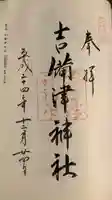 奉拝
吉備津神社
平成二十四年十二月廿四日